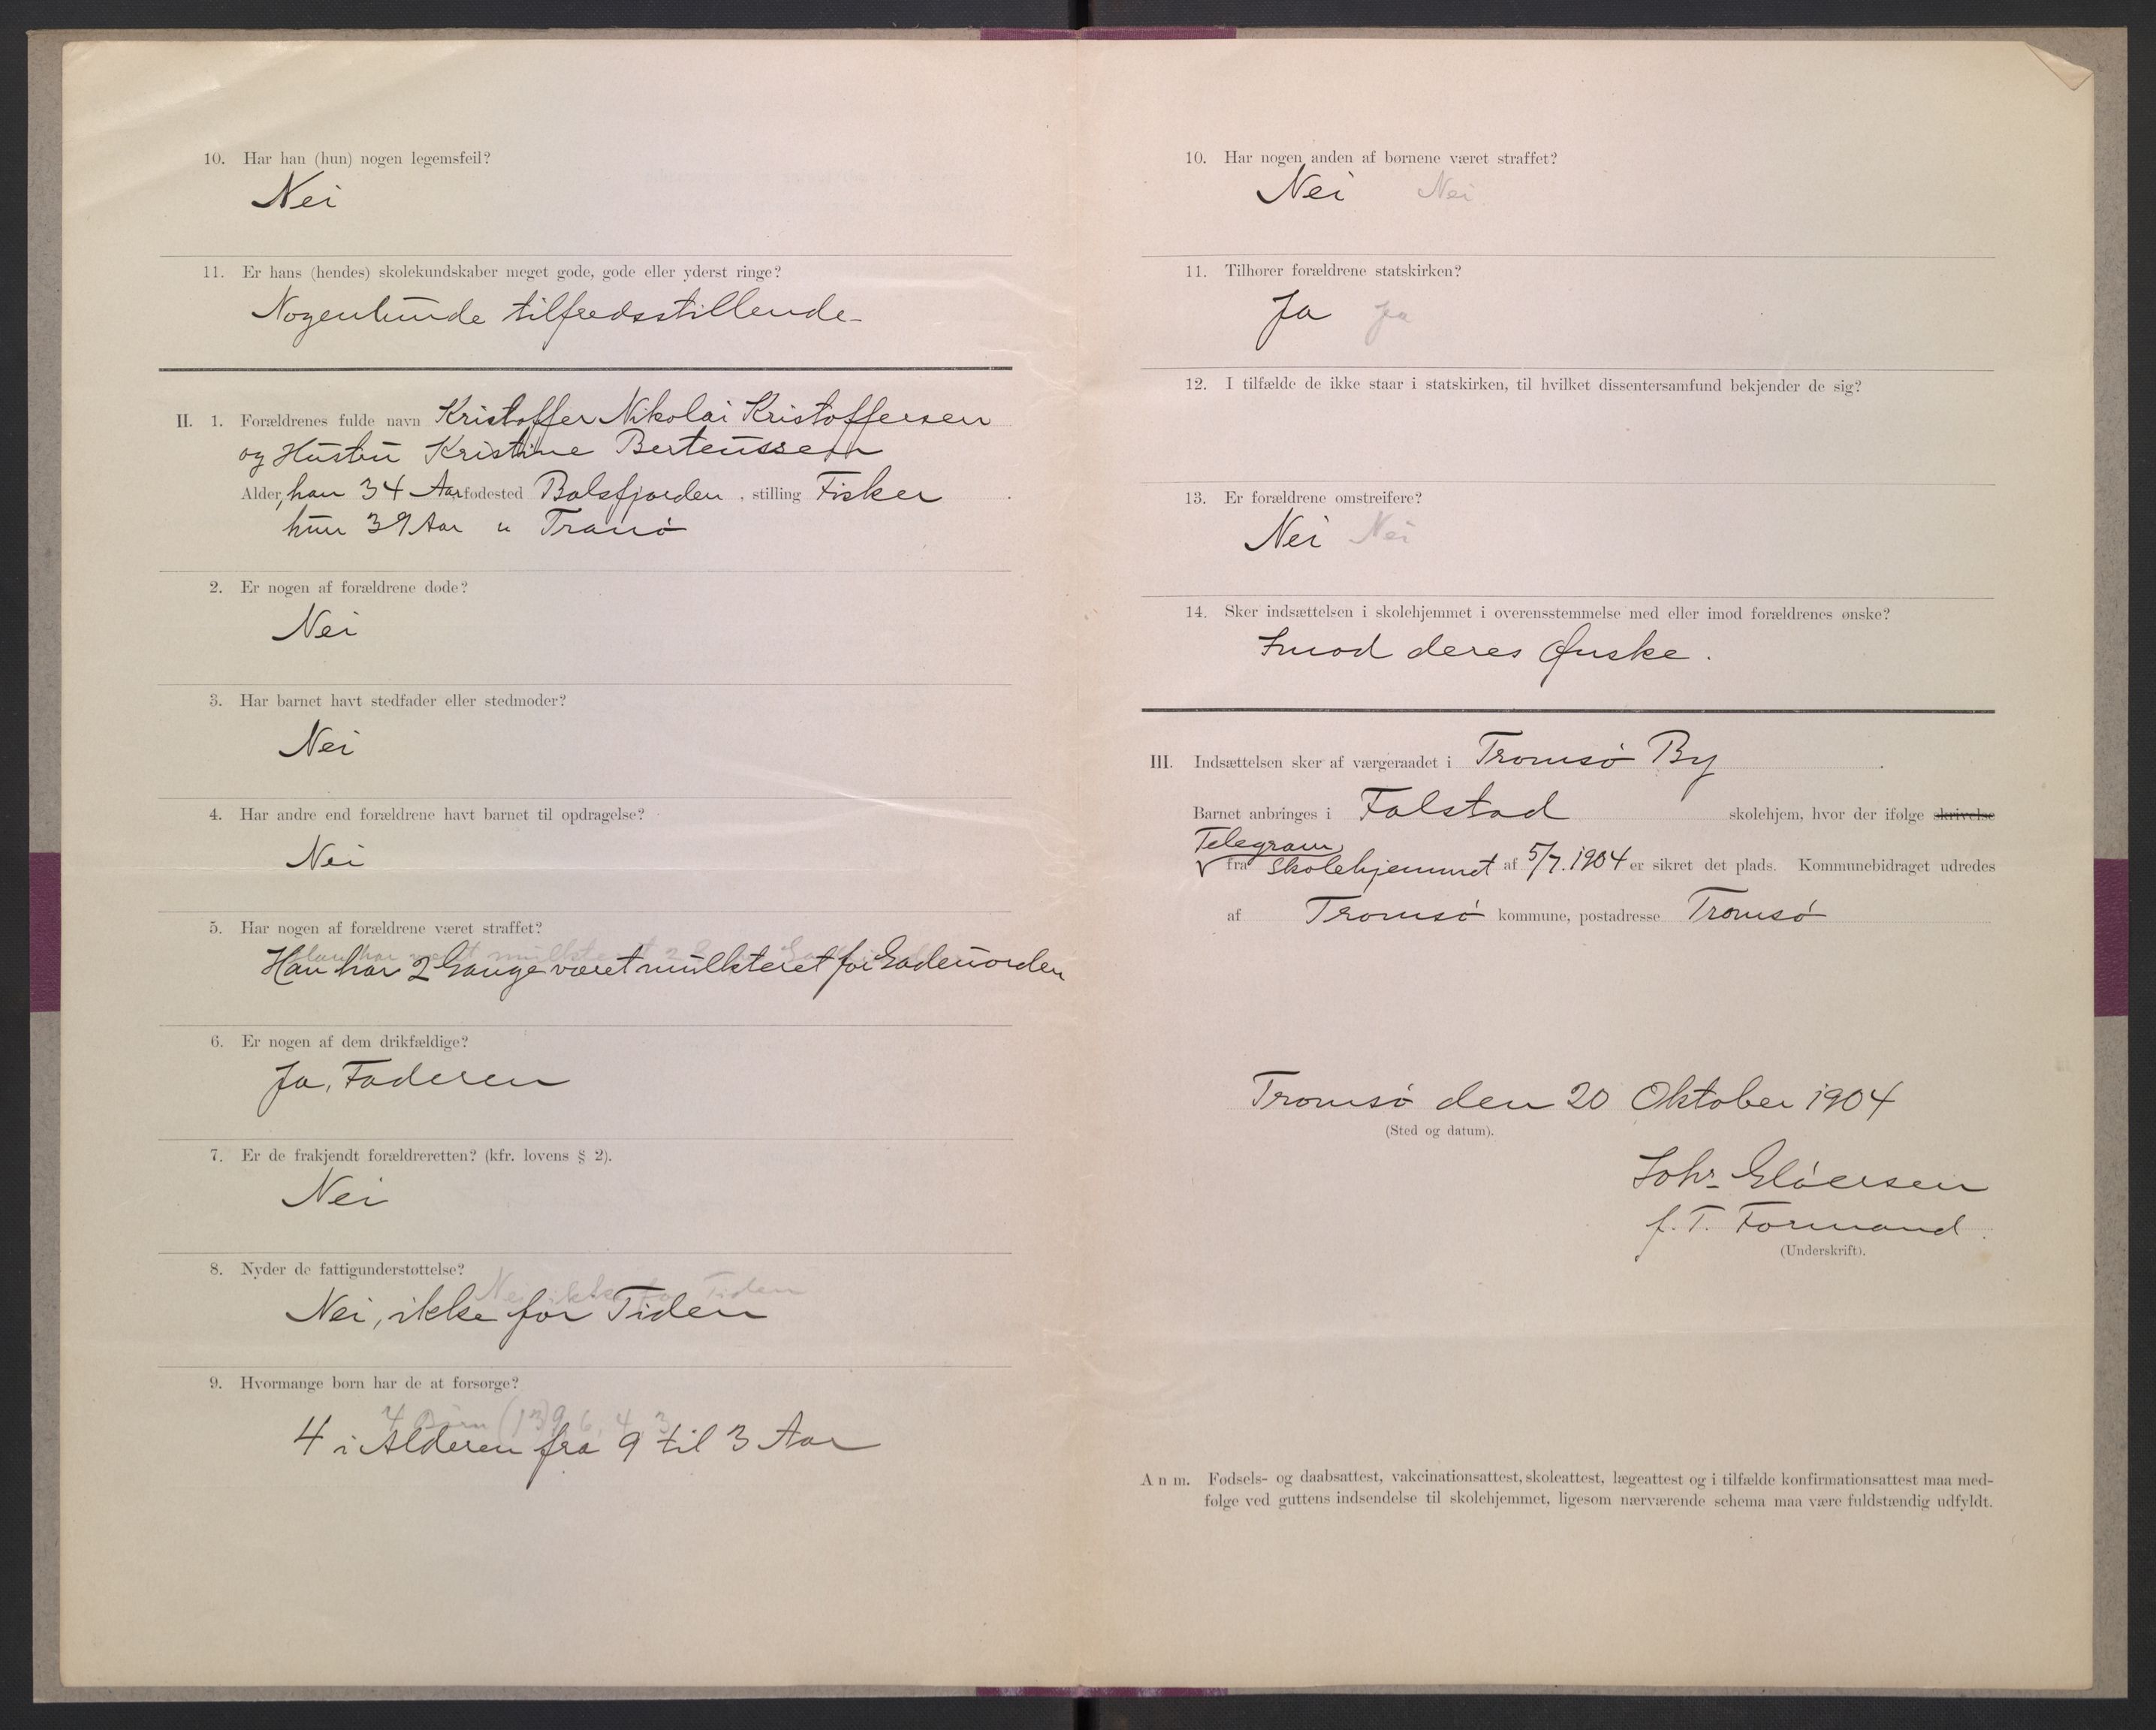 10. Har han (hun) nogen legemsfeil?
Nei
11. Er hans (hendes) skolekundskaber meget gode, gode eller yderst ringe?
Nogenlunde tilfredsstillende
II. 1. Forældrenes fulde navn Kristoffer Nikolai Kristoffersen
og Hustru Kristine Berteussen
Alder, han 34 Aar fødested Balsfjorden, stilling Fisker
hun 39 Aar " Tranø
2. Er nogen af forældrene døde?
Nei
3. Har barnet havt stedfader eller stedmoder?
Nei
4. Har andre end forældrene havt barnet til opdragelse?
Nei
5. Har nogen af forældrene været straffet?
Han har været mulkteret 2
Han har 2 Gange været mulkteret for Gadeuorden
6. Er nogen af dem drikfældige?
Ja, Faderen
7. Er de frakjendt forældreretten? (kfr. lovens § 2).
Nei
8. Nyder de fattigunderstøttelse?
Nei ikke for Tiden
Nei, ikke for Tiden
9. Hvormange børn har de at forsørge?
4 Børn (13) 9, 6, 4, 3
4 i Alderen fra 9 til 3 Aar
10. Har nogen anden af børnene været straffet?
Nei Nei
11. Tilhører forældrene statskirken?
Ja Ja
12. I tilfælde de ikke staar i statskirken, til hvilket dissentersamfund bekjender de sig?
13. Er forældrene omstreifere?
Nei Nei
14. Sker indsættelsen i skolehjemmet i overensstemmelse med eller imod forældrenes ønske?
Imod deres Ønske.
III. Indsættelsen sker af værgeraadet i Tromsø By.
Barnet anbringes i Falstad skolehjem, hvor der ifølge skrivelse
Telegram
fra Skolehjemmet af 5/7.1904 er sikret det plads. Kommunebidraget udredes
af Tromsø kommune, postadresse Tromsø
Tromsø den 20 Oktober 1904
(Sted og datum).
Johs. Gløersen
f. T. Formand.
(Underskrift).
Anm. Fødsels- og daabsattest, vakcinationsattest, skoleattest, lægeattest og i tilfælde konfirmationsattest maa med-
følge ved guttens indsendelse til skolehjemmet, ligesom nærværende schema maa være fuldstændig udfyldt.